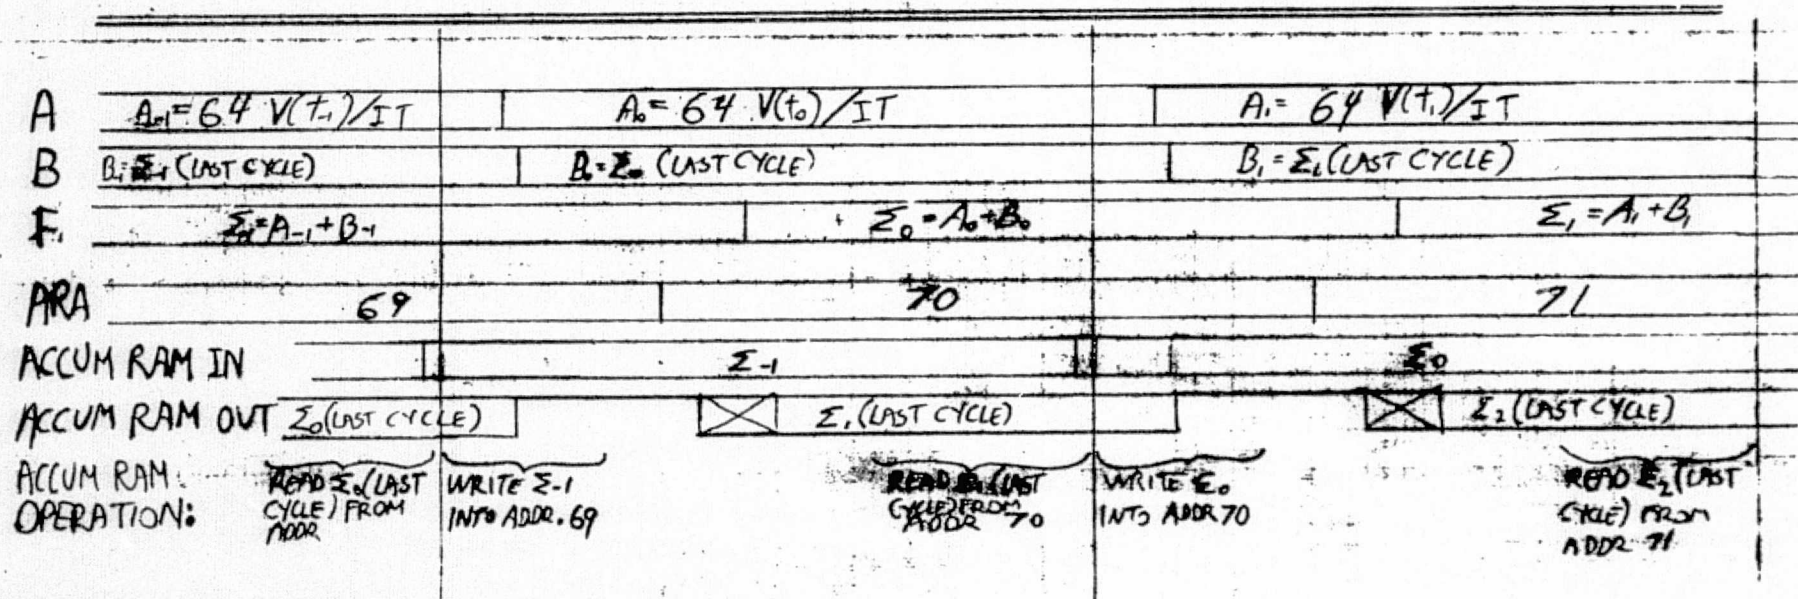 A A-1 = 64 V(t-1)/IT A0 = 64 V(t0)/IT A1 = 64 V(t1)/IT
B B-1 = Σ-1 (LAST CYCLE) B0 = Σ0 (LAST CYCLE) B1 = Σ1 (LAST CYCLE)
F. Σ-1 = A-1 + B-1 Σ0 = A0 + B0 Σ1 = A1 + B1
ARA 69 70 71
ACCUM RAM IN Σ-1 Σ0
ACCUM RAM OUT Σ0 (LAST CYCLE) Σ1 (LAST CYCLE) Σ2 (LAST CYCLE)
ACCUM RAM
OPERATION:
READ Σ0 (LAST
CYCLE) FROM
ADDR
WRITE Σ-1
INTO ADDR. 69
READ Σ1 (LAST
CYCLE) FROM
ADDR 70
WRITE Σ0
INTO ADDR 70
READ Σ2 (LAST
CYCLE) FROM
ADDR 71